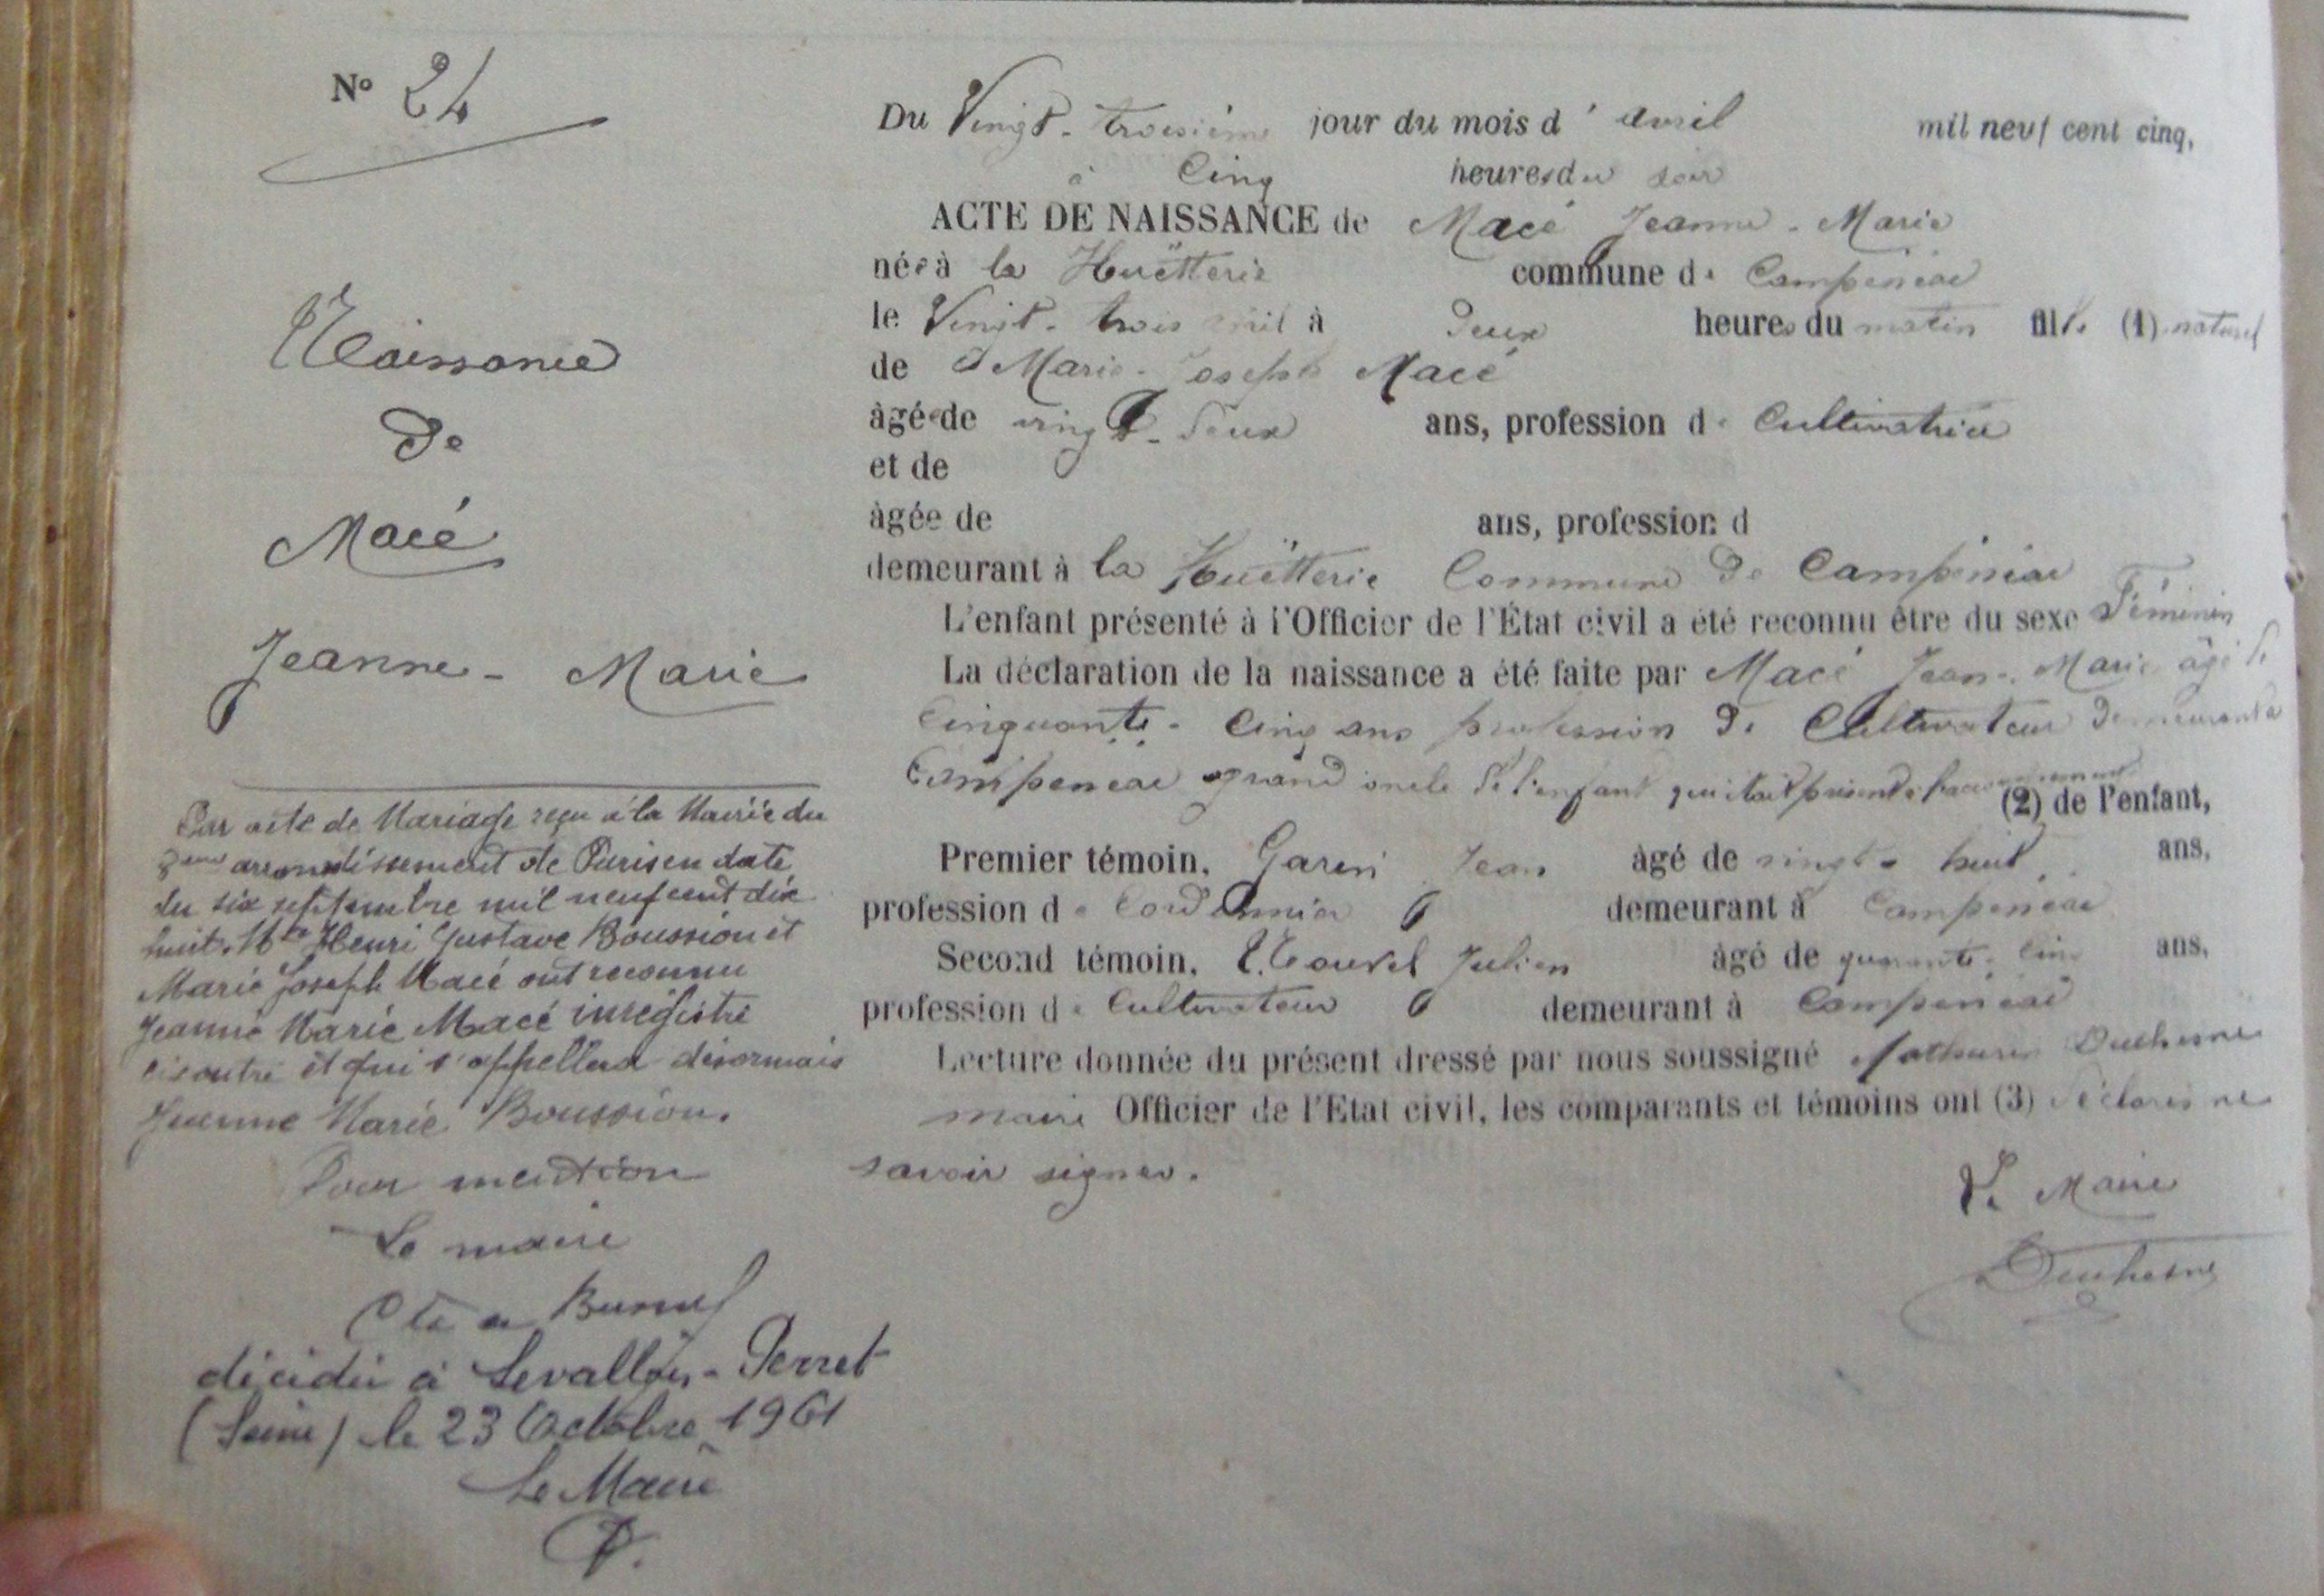 N° 24
Naissance
de
Macé
Jeanne - Marie
Par acte de Mariage reçu à la Mairie du
arrondissement de Paris en date
du six septembre mil neuf cent dix
huit. Henri Gustave Boussion et
Marie Joseph Macé ont reconnu
Jeanne Marie Macé enregistré
ci contre et qui s'appellera désormais
Jeanne Marie Boussion.
Pour mention
Le maire
décidée à Levallois-Perret
(Seine) le 23 Octobre 1961
Le Maire
Du Vingt-troisième jour du mois d'avril mil neuf cent cinq,
à Cinq heures du soir
ACTE DE NAISSANCE de Macé Jeanne-Marie
née à la Huëtterie commune de Campénéac
le Vingt-trois avril à deux heures du matin fille (1) naturel
de Marie-Joseph Macé
âgée de vingt-deux ans, profession de Cultivatrice
et de
âgée de ans, profession d
demeurant à la Huëtterie Commune de Campénéac
L'enfant présenté à l'Officier de l'État civil a été reconnu être du sexe Féminin
La déclaration de la naissance a été faite par Macé Jean-Marie âgé de
Cinquante-Cinq ans profession de Cultivateur demeurant à
Campénéac grand oncle de l'enfant qui était présent à (2) de l'enfant,
Premier témoin, Garin Jean âgé de vingt-huit ans,
profession de Cordonnier demeurant à Campénéac
Second témoin, Julien âgé de quarante-cinq ans,
profession de Cultivateur demeurant à Campénéac
Lecture donnée du présent dressé par nous soussigné Mathurin Duchesne
maire Officier de l'Etat civil, les comparants et témoins ont (3) déclarés ne
savoir signer.
Le Maire
Duchesne